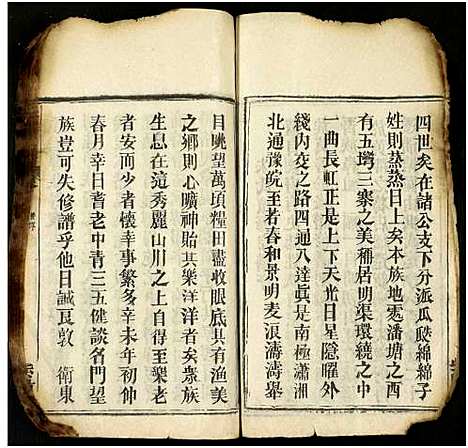 四世矣在諸公支下分派瓜瓞綿綿子
姓則蒸蒸日上矣本族地處潘塘之西
有五塆三寨之美稱居明渠環繞之中
一曲長虹正是上下天光日星隱曜外
綫內交之路四通八達眞是南極瀟湘
北通豫皖至若春和景明麥浪濤濤舉
目眺望萬頃糧田盡收眼底具有漁美
之鄉則心曠神貽其樂洋洋者矣衆族
生息在這秀麗山川之上耕至樂老
者安而少者懷幸事繁多辛未年初仲
春月幸日耆老中青三五健談名門望
族豈可失修譜乎他日誠良敦 衛東